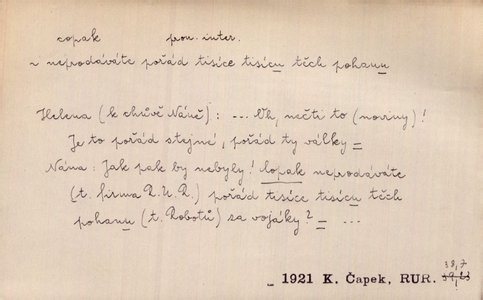 copak pron. inter.
~ neprodáváte pořád tisíce tisícu těch pohanu
Helena (k chůvě Náně): ... Uh, nečti to (noviny)!
Je to pořád stejné, pořád ty války =
Nána: Jak pak by nebyly! Copak neprodáváte
(t. firma R.U.R.) pořád tisíce tisícu těch
pohanu (t. Robotů) sa vojáky? = ...
38,7
1921 K. Čapek, RUR.